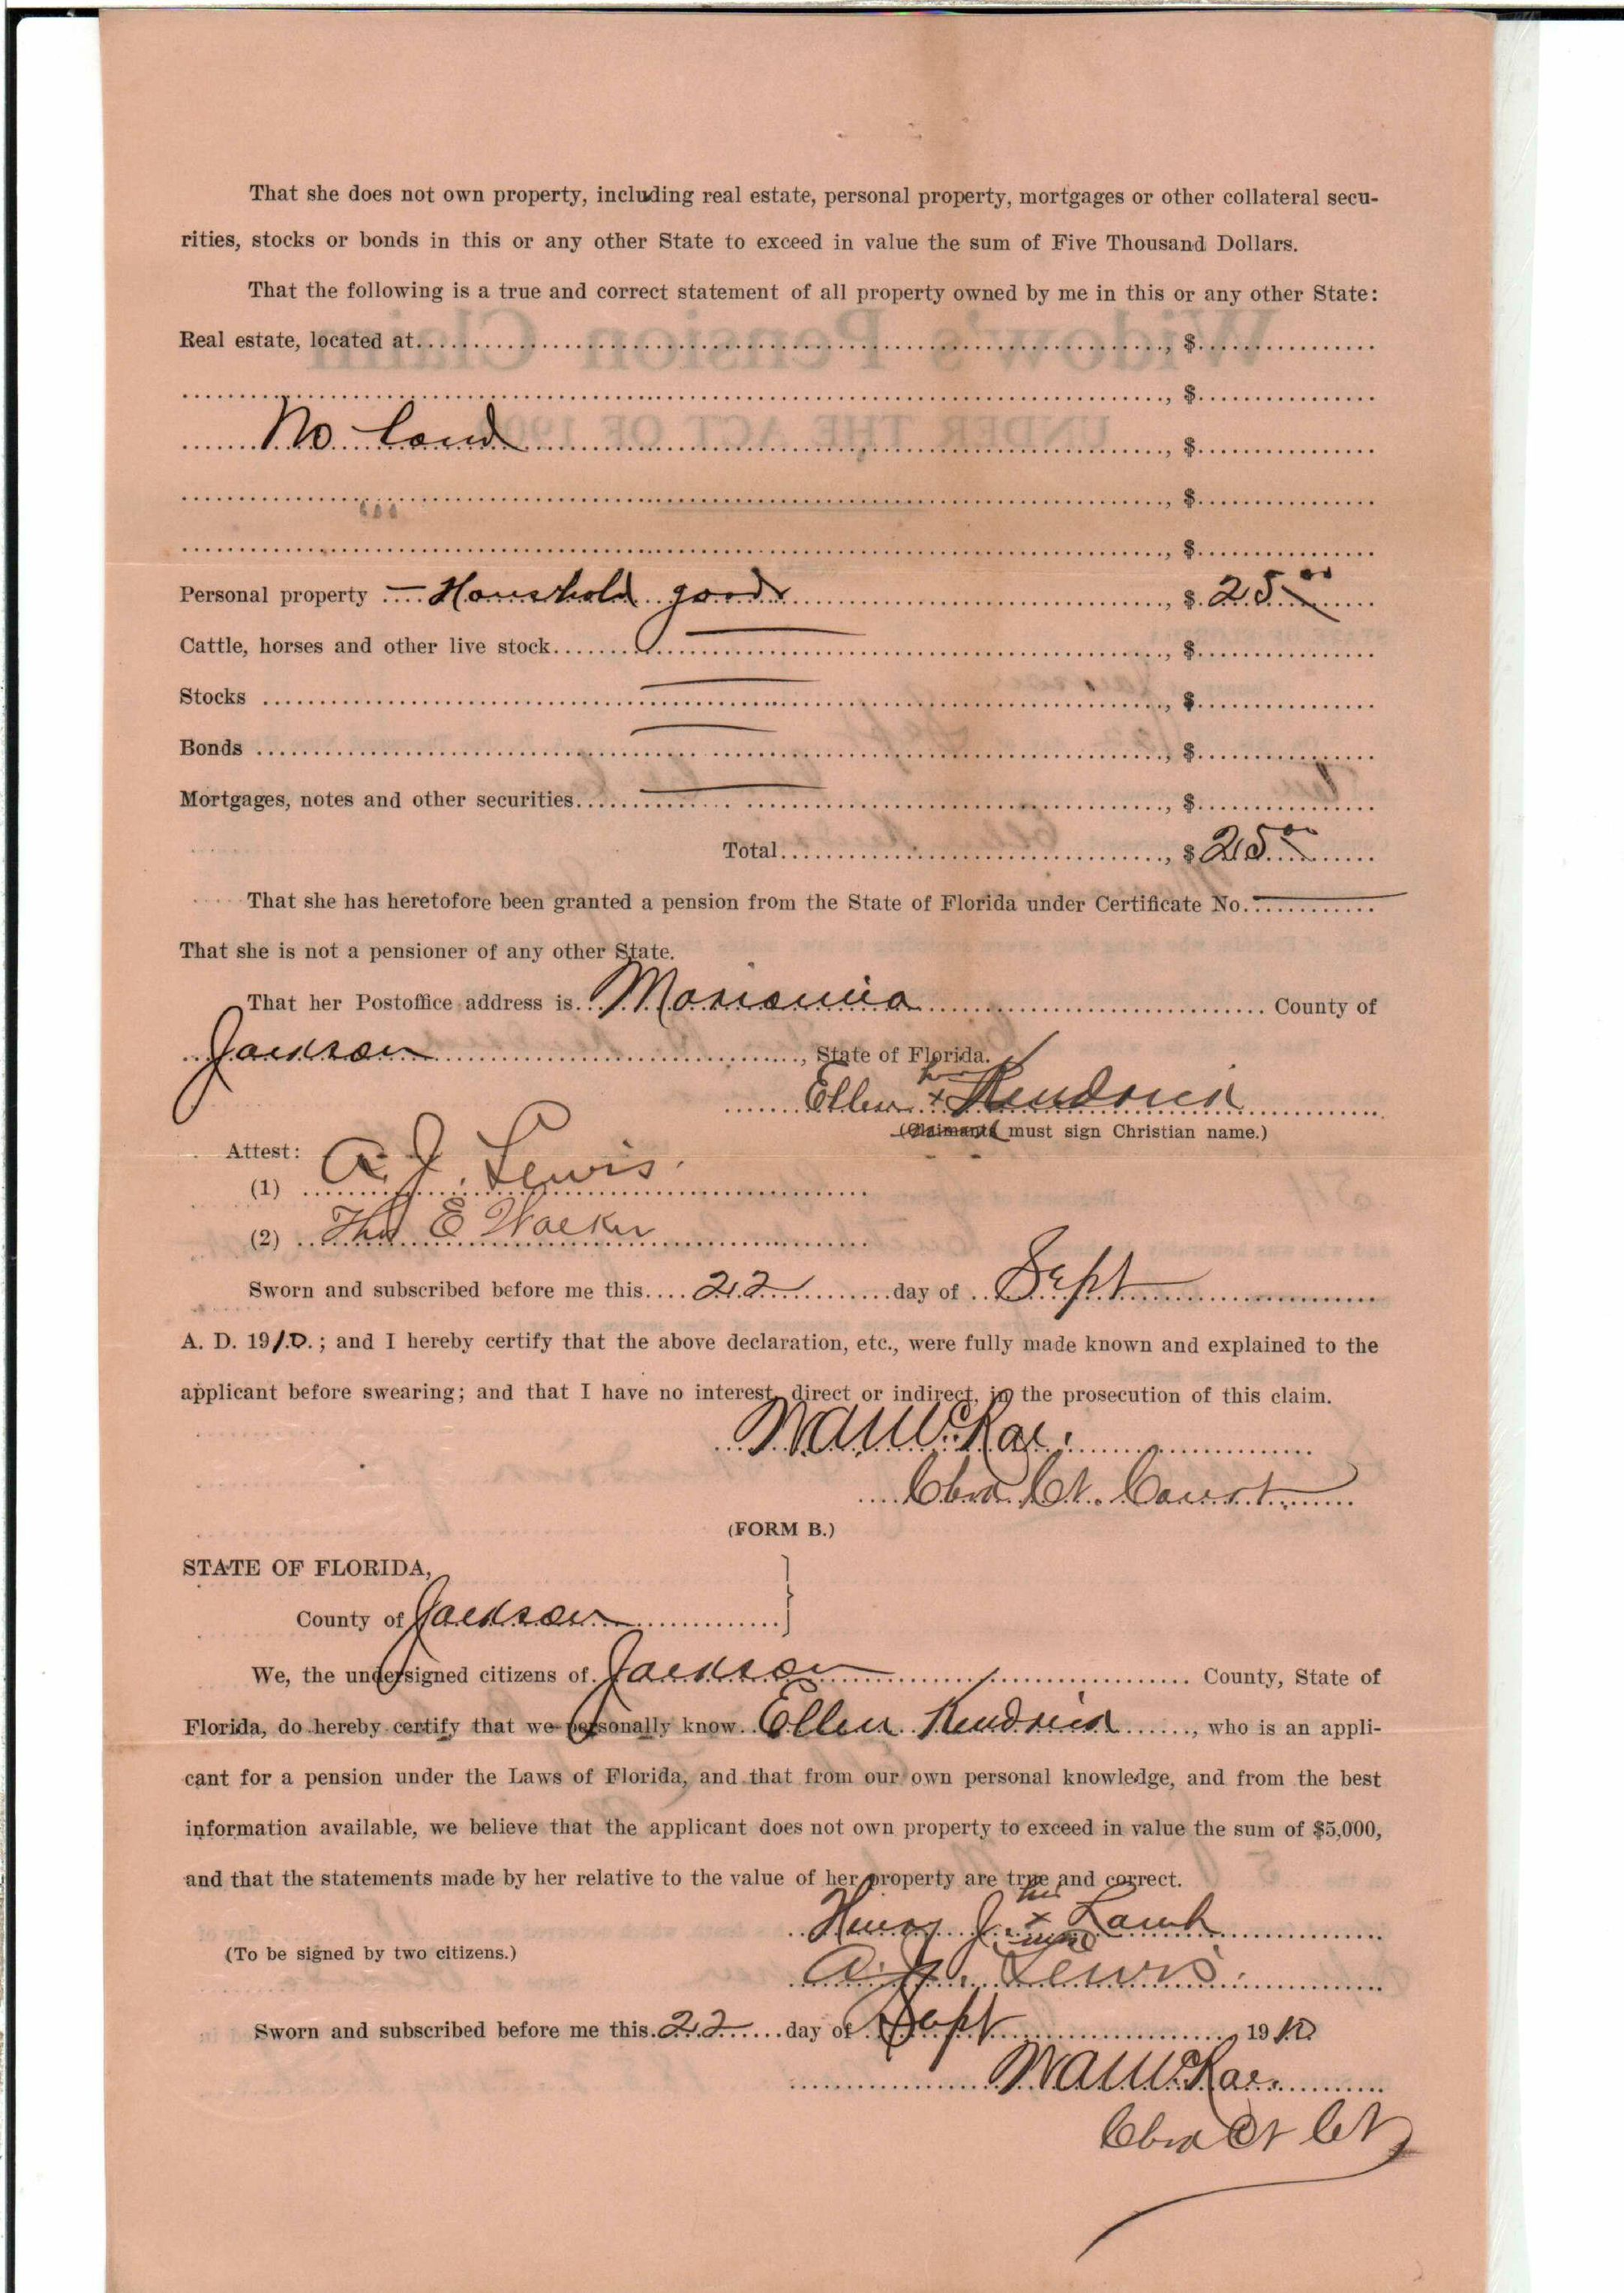 That she does not own property, including real estate, personal property, mortgages or other collateral secu-
rities, stocks or bonds in this or any other State to exceed in value the sum of Five Thousand Dollars.
That the following is a true and correct statement of all property owned by me in this or any other State:
Real estate, located at , $
, $
No land , $
, $
, $
Personal property — Household goods , $ 25 00
Cattle, horses and other live stock , $
Stocks , $
Bonds , $
Mortgages, notes and other securities , $
Total , $ 25 00
That she has heretofore been granted a pension from the State of Florida under Certificate No.
That she is not a pensioner of any other State.
That her Postoffice address is Marianna County of
Jackson , State of Florida.
her
Ellen x Kendrick
(Claimants must sign Christian name.)
Attest:
(1) A. J. Lewis
(2) Thos E Walker
Sworn and subscribed before me this 22 day of Sept
A. D. 1910.; and I hereby certify that the above declaration, etc., were fully made known and explained to the
applicant before swearing; and that I have no interest, direct or indirect, in the prosecution of this claim.
McRae
Clerk Ct. Court
(FORM B.)
STATE OF FLORIDA,
County of Jackson
We, the undersigned citizens of Jackson County, State of
Florida, do hereby certify that we personally know Ellen Kendrick , who is an appli-
cant for a pension under the Laws of Florida, and that from our own personal knowledge, and from the best
information available, we believe that the applicant does not own property to exceed in value the sum of $5,000,
and that the statements made by her relative to the value of her property are true and correct.
his
Henry J. x Lamb
mark
(To be signed by two citizens.)
A. J. Lewis
Sworn and subscribed before me this 22 day of Sept 1910
McRae
Clerk Ct Ct